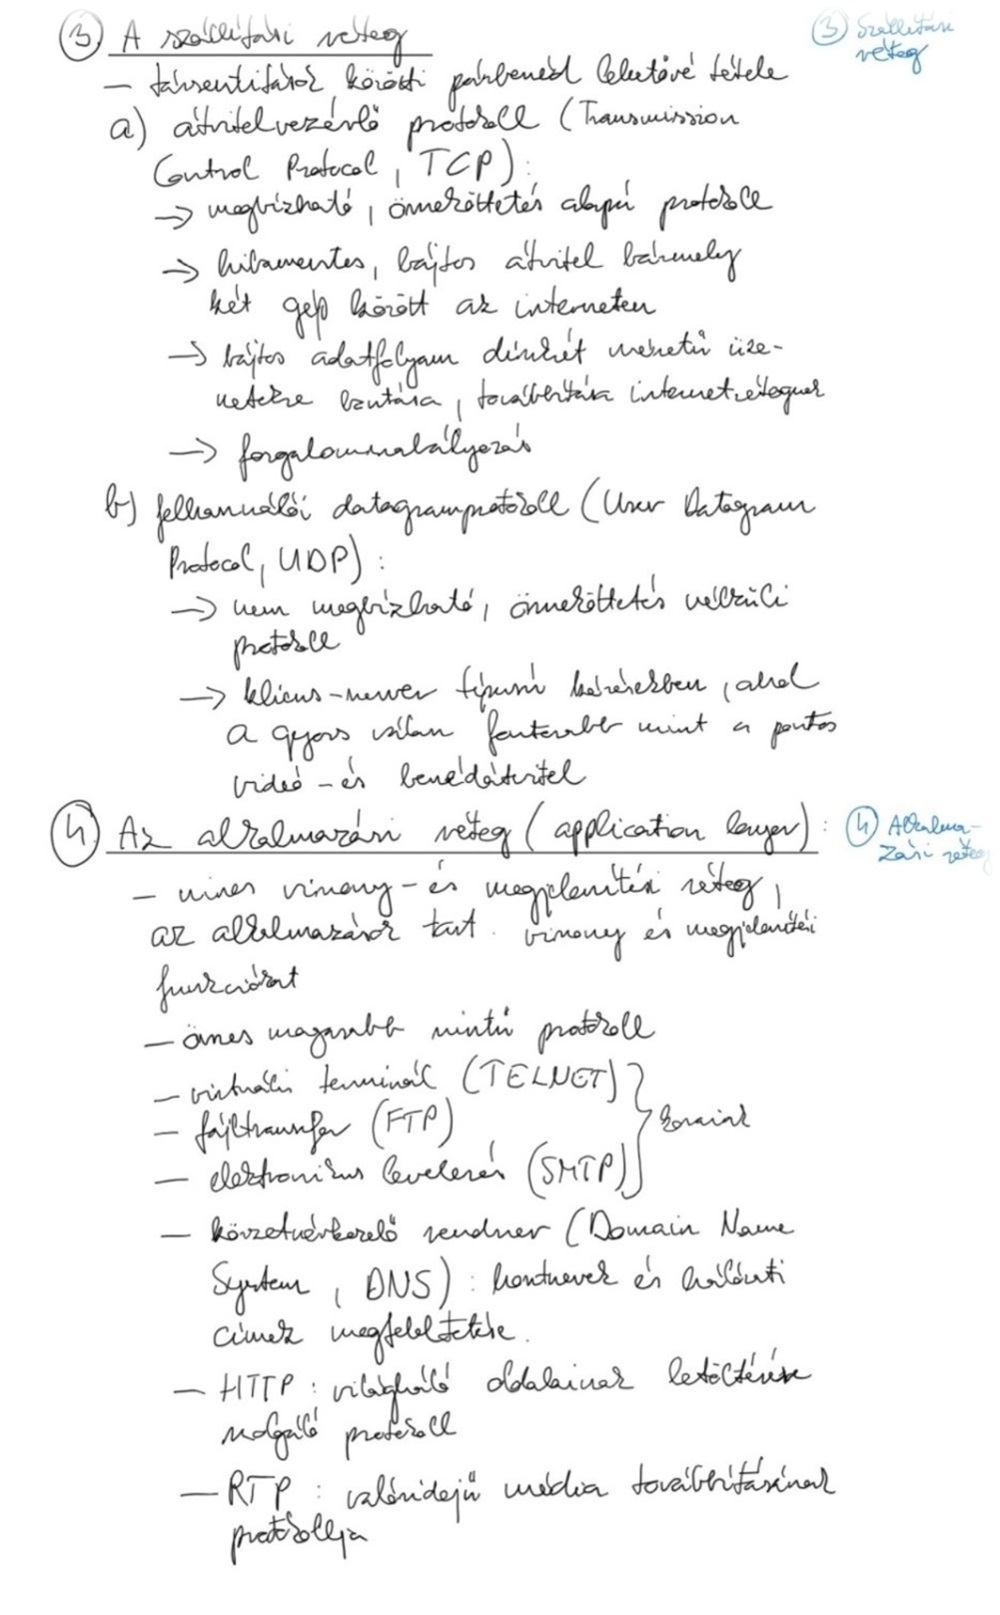 ③ A szállítási réteg
③ Szállítási
réteg
– társentitások közötti párbeszéd lehetővé tétele
a) átvitelvezérlő protokoll (Transmission
Control Protocol, TCP):
→ megbízható, összeköttetés alapú protokoll
→ hibamentes, bájtos átvitel bármely
két gép között az interneten
→ bájtos adatfolyam diszkrét méretű üze-
netekre bontása, továbbítása internetrétegnek
→ forgalomszabályozás
b) felhasználói datagramprotokoll (User Datagram
Protocol, UDP):
→ nem megbízható, összeköttetés nélküli
protokoll
→ kliens-szerver típusú kérésekben, ahol
a gyors válasz fontosabb mint a pontos
videó – és beszédátvitel
④ Az alkalmazási réteg (application layer):
④ Alkalma-
zási réteg
– nincs viszony – és megjelenítési réteg,
az alkalmazások tart. viszony és megjelenítési
funkciókat
– összes magasabb szintű protokoll
– virtuális terminál (TELNET)
– fájltranszfer (FTP)
– elektronikus levelezés (SMTP)
} koraiak
– körzetnévkezelő rendszer (Domain Name
System, DNS): hosztnevek és hálózati
címek megfeleltetése.
– HTTP: világháló oldalainak letöltésére
szolgáló protokoll
– RTP: valósidejű média továbbításának
protokollja